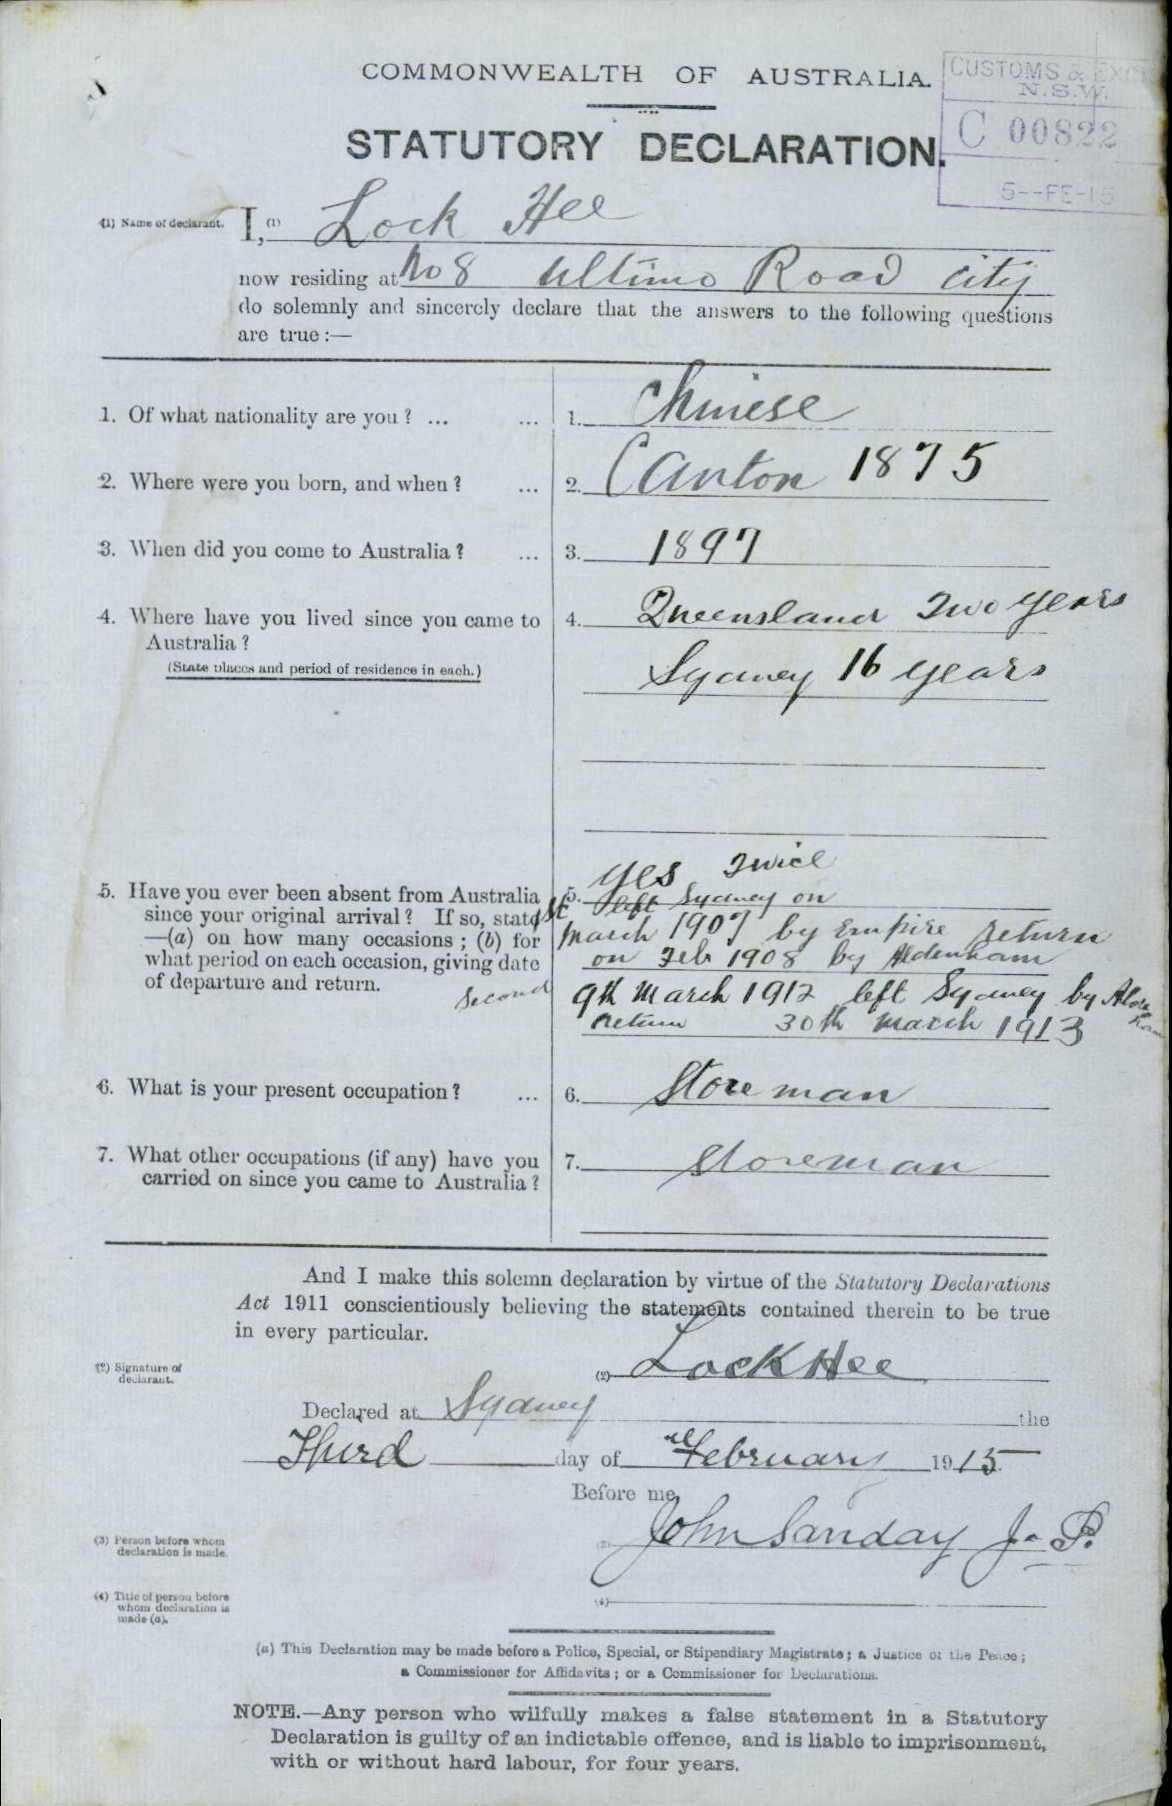 COMMONWEALTH OF AUSTRALIA.
CUSTOMS & EXC
N.S.W.
C 00822
5--FE-15
STATUTORY DECLARATION.
(1) Name of declarant. I, (1) Lock Hee
now residing at No 8 Ultimo Road City
do solemnly and sincerely declare that the answers to the following questions
are true:—
1. Of what nationality are you? ... ... 1. Chinese
2. Where were you born, and when? ... 2. Canton 1875
3. When did you come to Australia? ... 3. 1897
4. Where have you lived since you came to 4. Queensland Two years
Australia?
(State places and period of residence in each.) Sydney 16 years
yes Twice
5. Have you ever been absent from Australia 5. left Sydney on
since your original arrival? If so, state 1st March 1907 by Empire return
—(a) on how many occasions; (b) for
what period on each occasion, giving date on Feb 1908 by Aldenham
of departure and return. second 9th March 1912 left Sydney by
return 30th March 1913
6. What is your present occupation? ... 6. Store man
7. What other occupations (if any) have you 7. storeman
carried on since you came to Australia?
And I make this solemn declaration by virtue of the Statutory Declarations
Act 1911 conscientiously believing the statements contained therein to be true
in every particular.
(2) Signature of
declarant. (2) Lock Hee
Declared at Sydney the
Third day of February 1915
Before me,
(3) Person before whom
declaration is made. (3) John Sanday J. P.
(4) Title of person before
whom declaration is
made (a). (4)
(a) This Declaration may be made before a Police, Special, or Stipendiary Magistrate; a Justice of the Peace;
a Commissioner for Affidavits; or a Commissioner for Declarations.
NOTE.—Any person who wilfully makes a false statement in a Statutory
Declaration is guilty of an indictable offence, and is liable to imprisonment,
with or without hard labour, for four years.